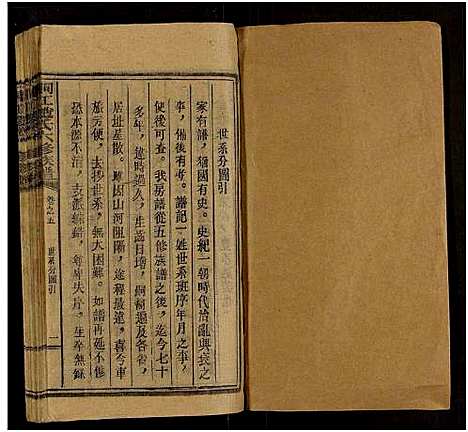 世系分圖引
家有譜，猶國有史。史紀一朝時代治亂興衰之
事，備後有考。譜記一姓世系班序年月之事，
使後可查。我房譜從五修族譜之後，迄今七十
多年，遠時過久，生齒日增，嗣榻遍及各省，
居址差散。雖因山河阻隔，途程遙遠，喜今車
旅方便，去抄世系，無大困難。如譜再延不修
恐本源不清，支派舛錯，年庠失片，生卒無錄
氏六修族
卷之五
世系分圖引
一